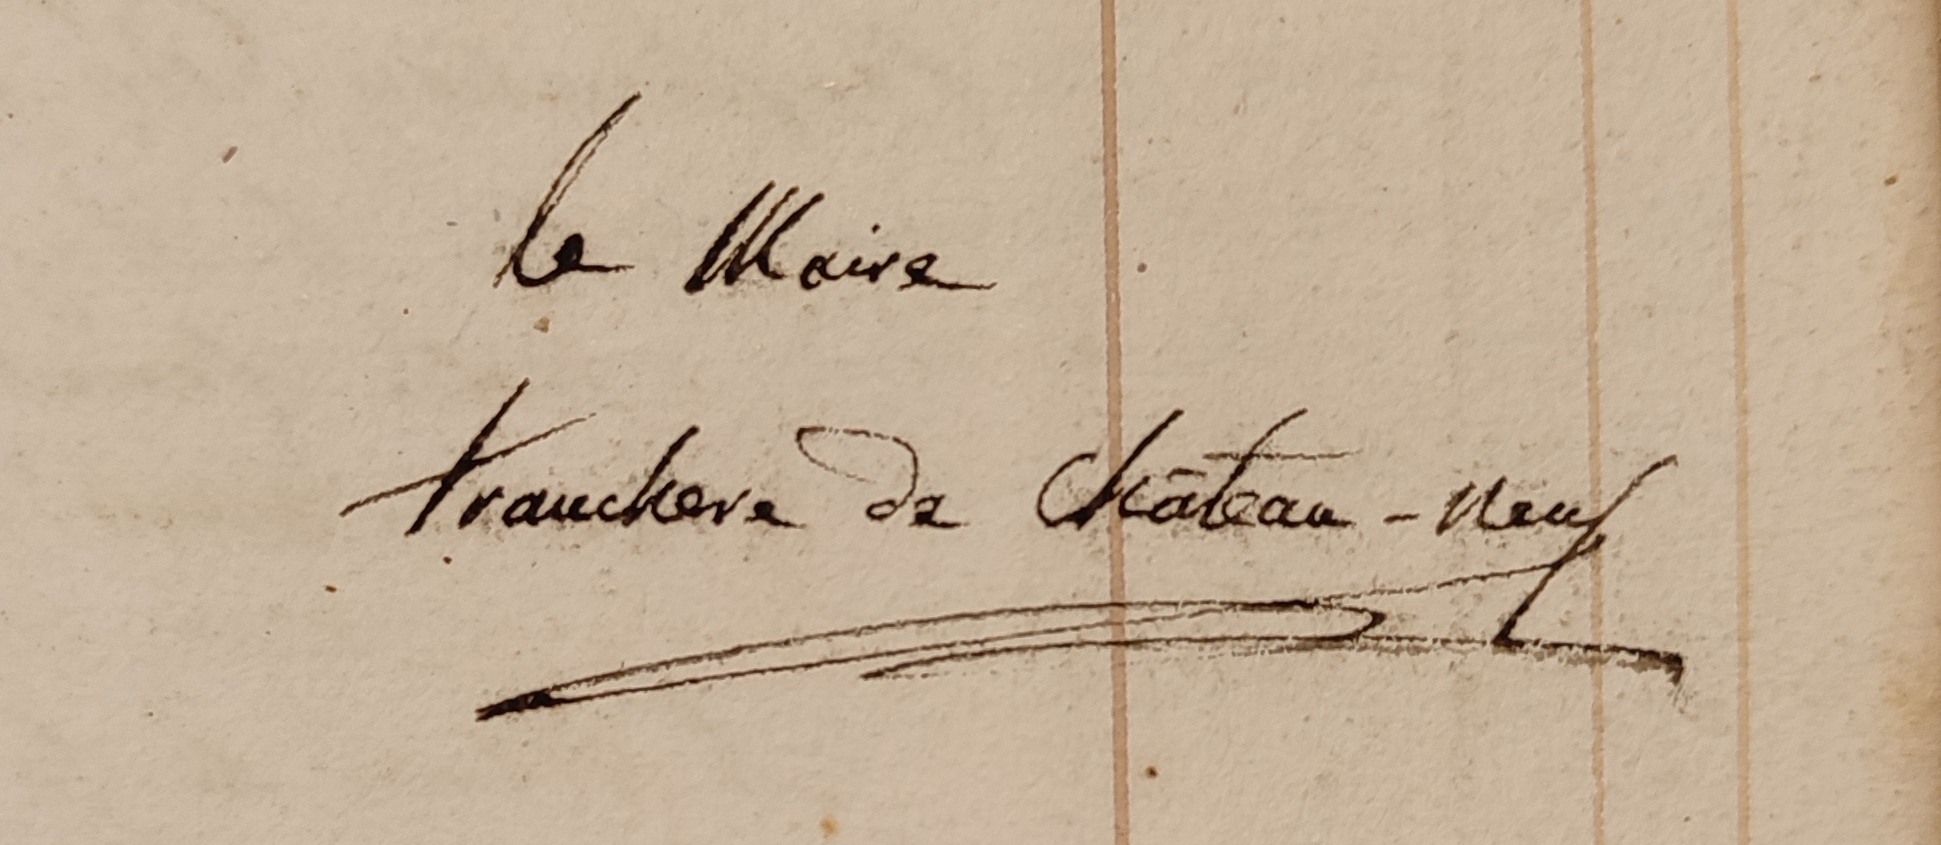 le Maire
tranchere de Château-neuf